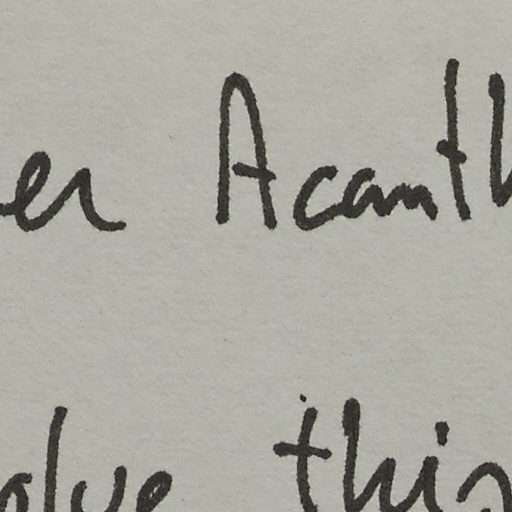 er Acanth
olve this